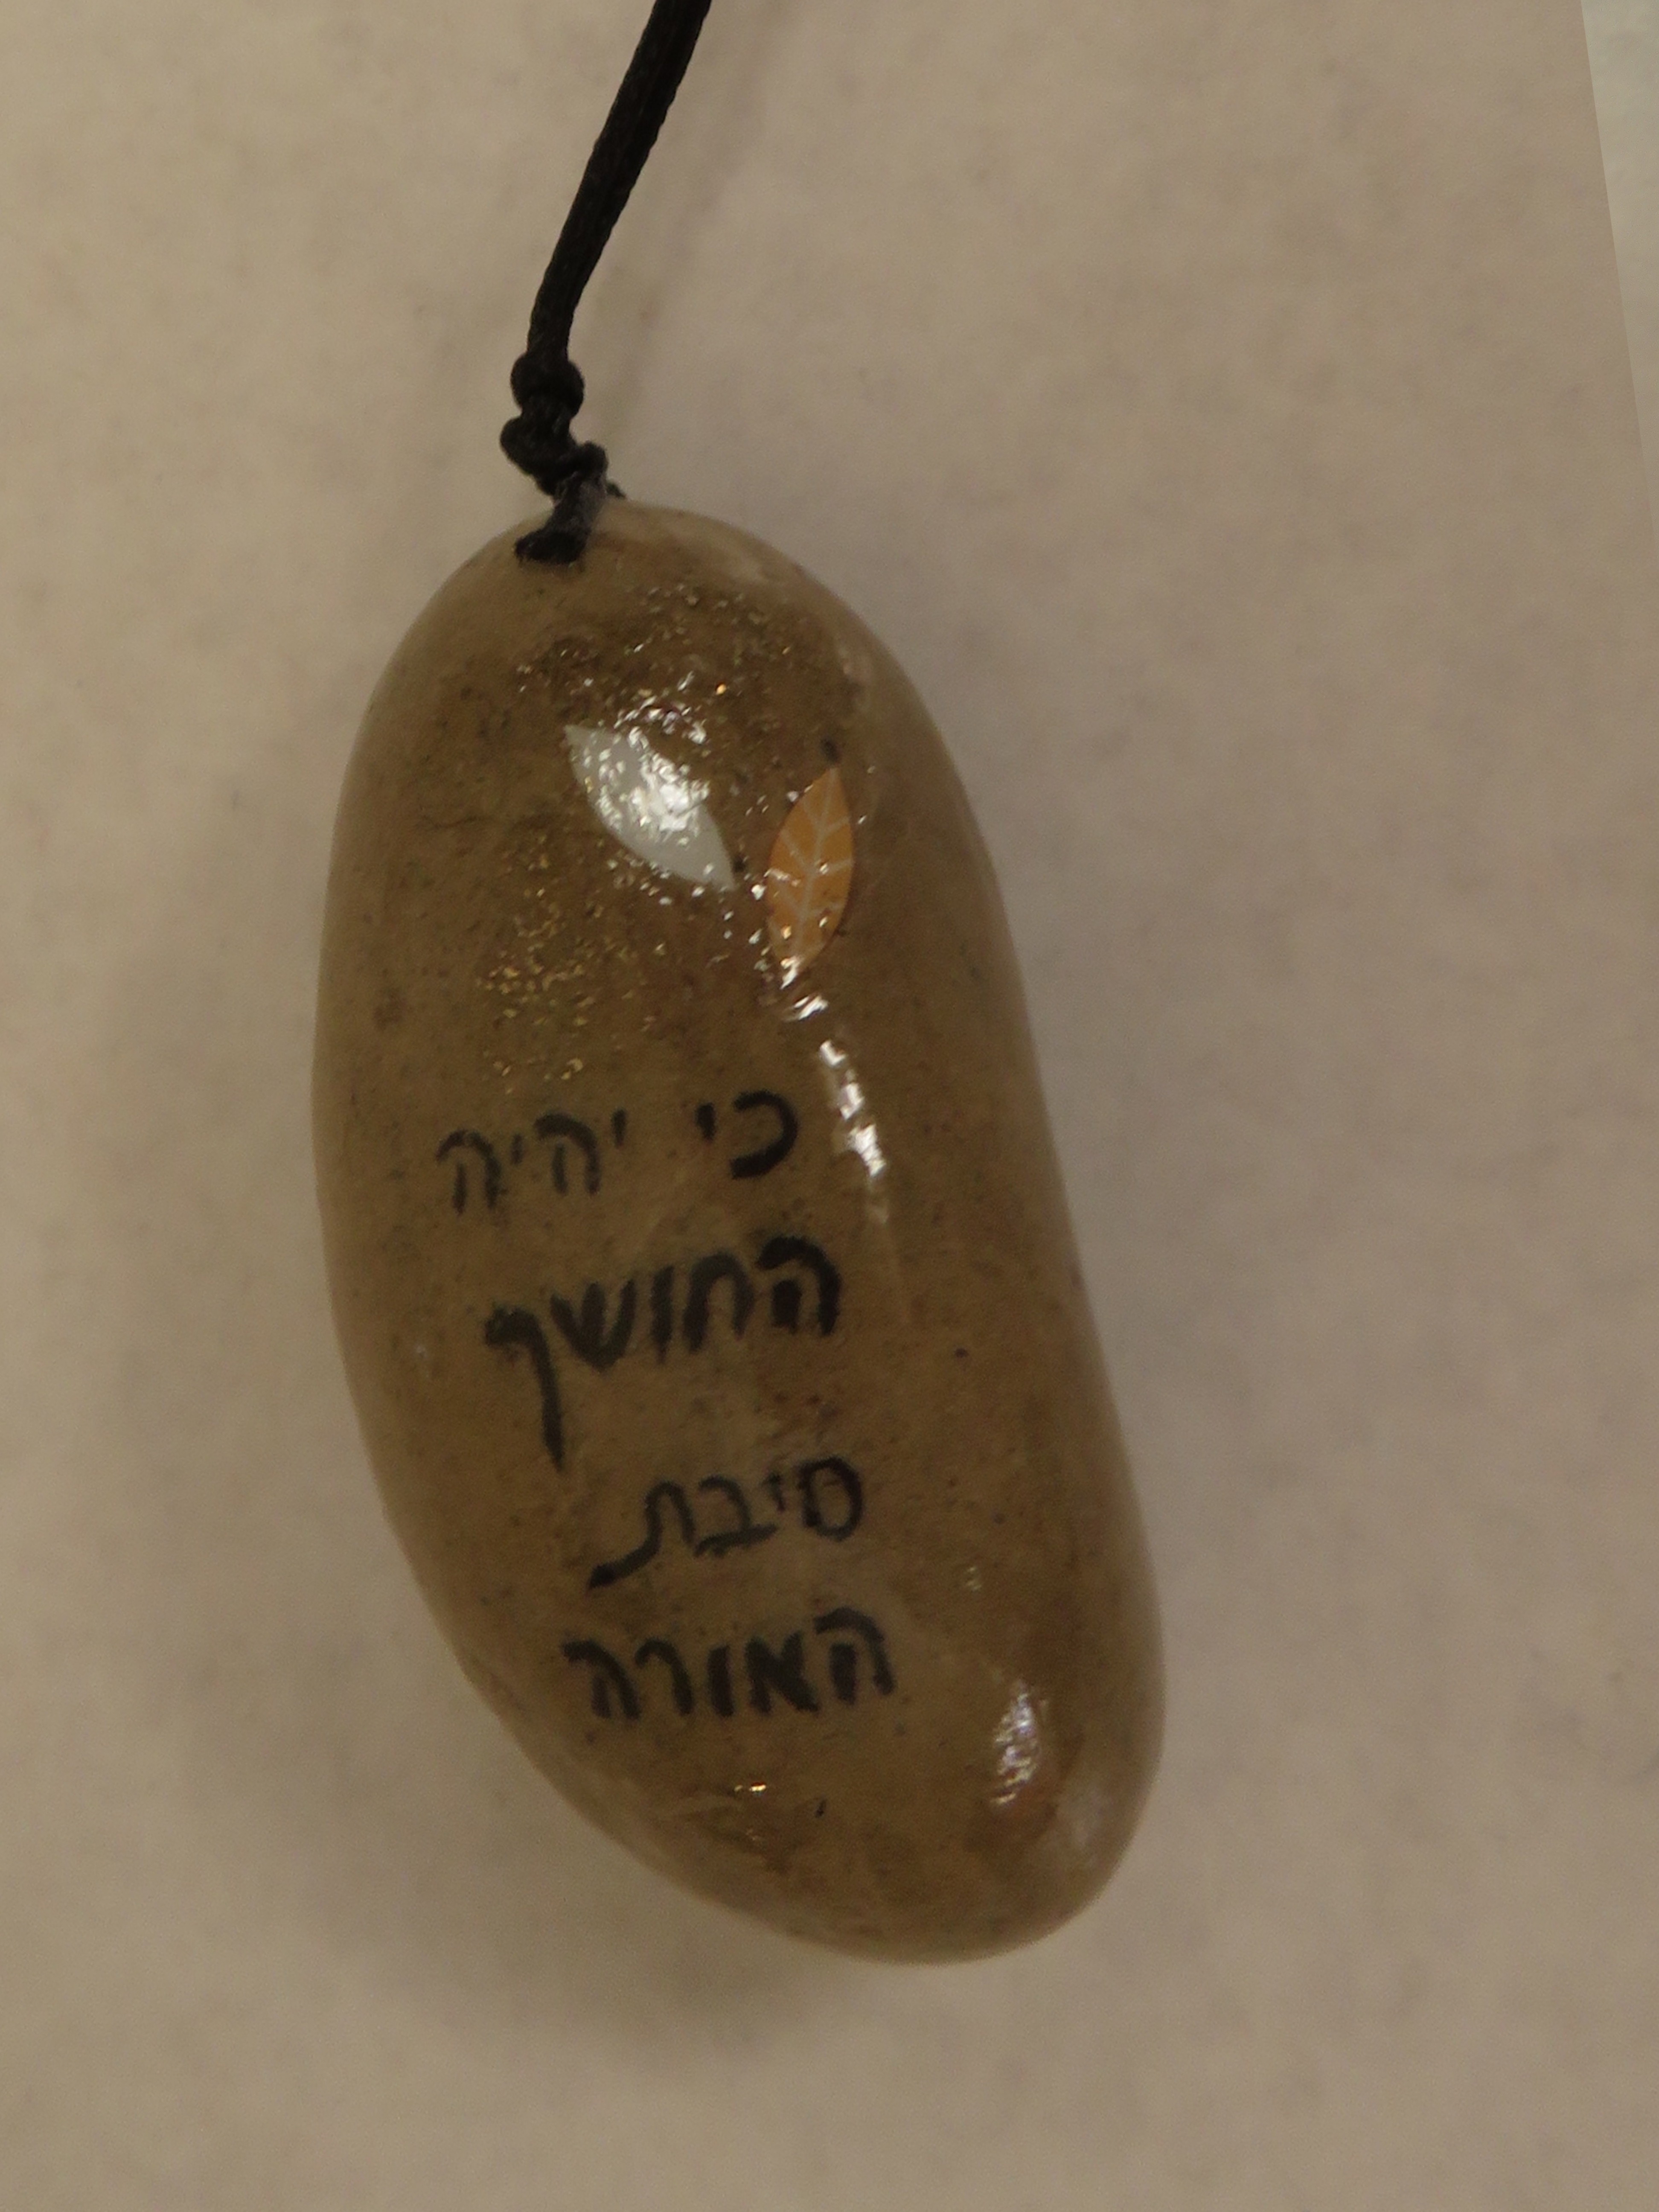 כי יהיה
החושך
סיבת
האורה